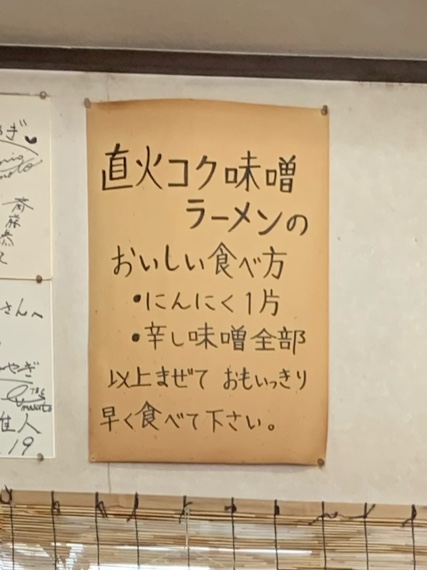 直火コク味噌
ラーメンの
おいしい食べ方
•にんにく1片
•辛し味噌全部
以上まぜて おもいっきり
早く食べて下さい。
さんへ
.19